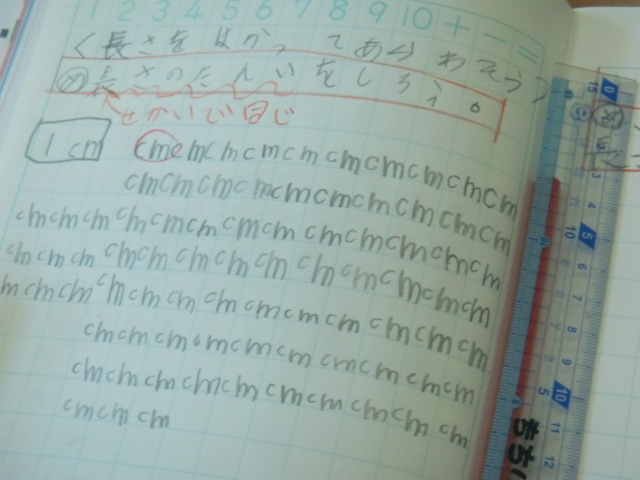 1 2 3 4 5 6 7 8 9 10 + - =
く長さをはかってあらわそう>
め 長さのたんいをしろう。
せかいで同じ
1 cm cm cm cm cm cm cm cm cm cm cm
cm cm cm cm cm cm cm cm cm cm
cm cm cm cm cm cm cm cm cm cm cm cm cm
cm cm cm cm cm cm cm cm cm cm cm cm
m cm cm cm cm cm cm cm cm cm cm cm cm
cm cm cm cm cm cm cm cm cm cm
cm cm cm cm cm cm cm cm cm cm
cm cm cm